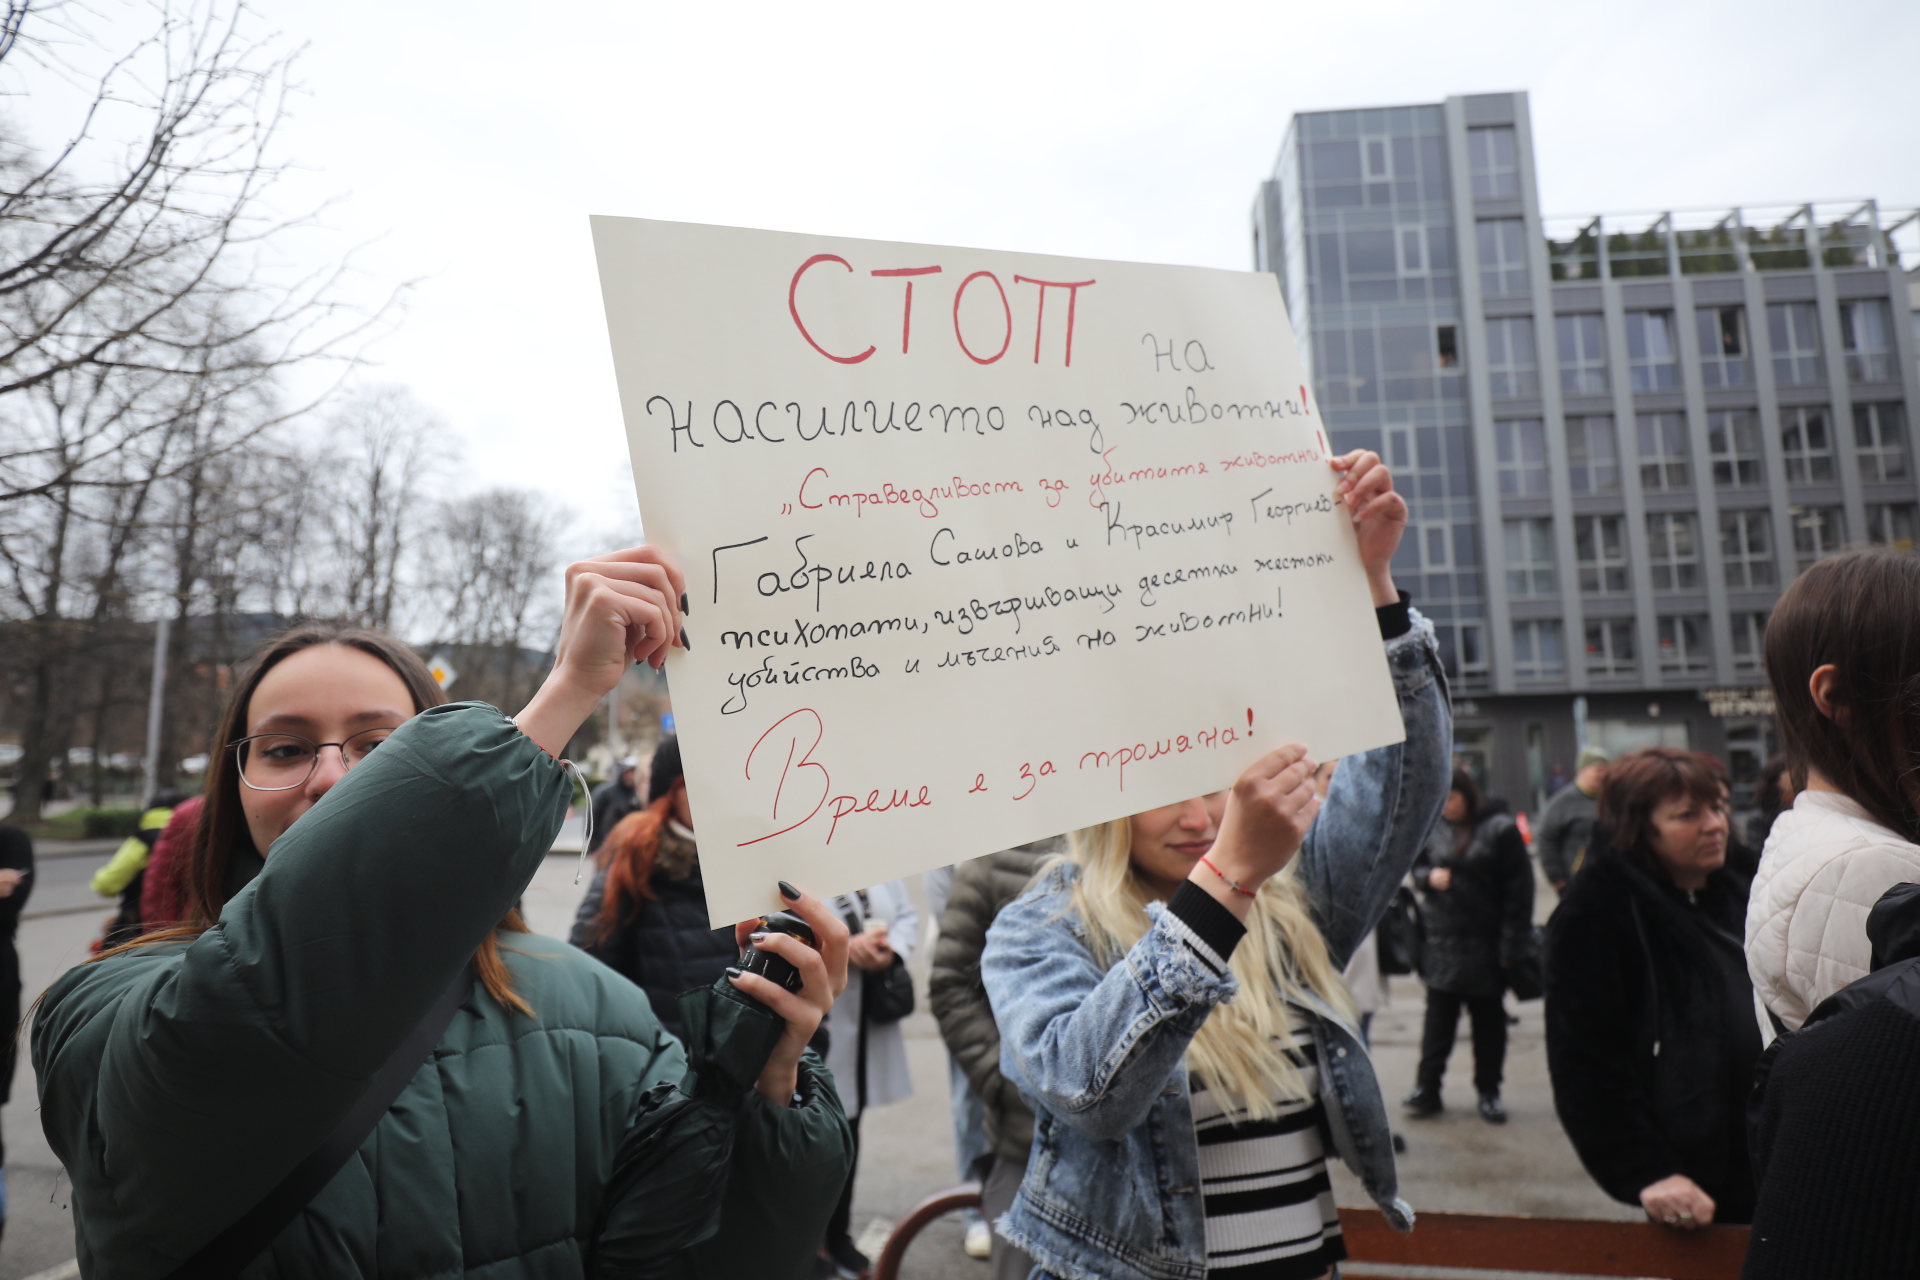 СТОП на
насилието над животни!
„Справедливост за убитите животни!
Габриела Сашова и Красимир Георгиев-
психопати, извършващи десетки жестоки
убийства и мъчения на животни!
Време е за промяна!